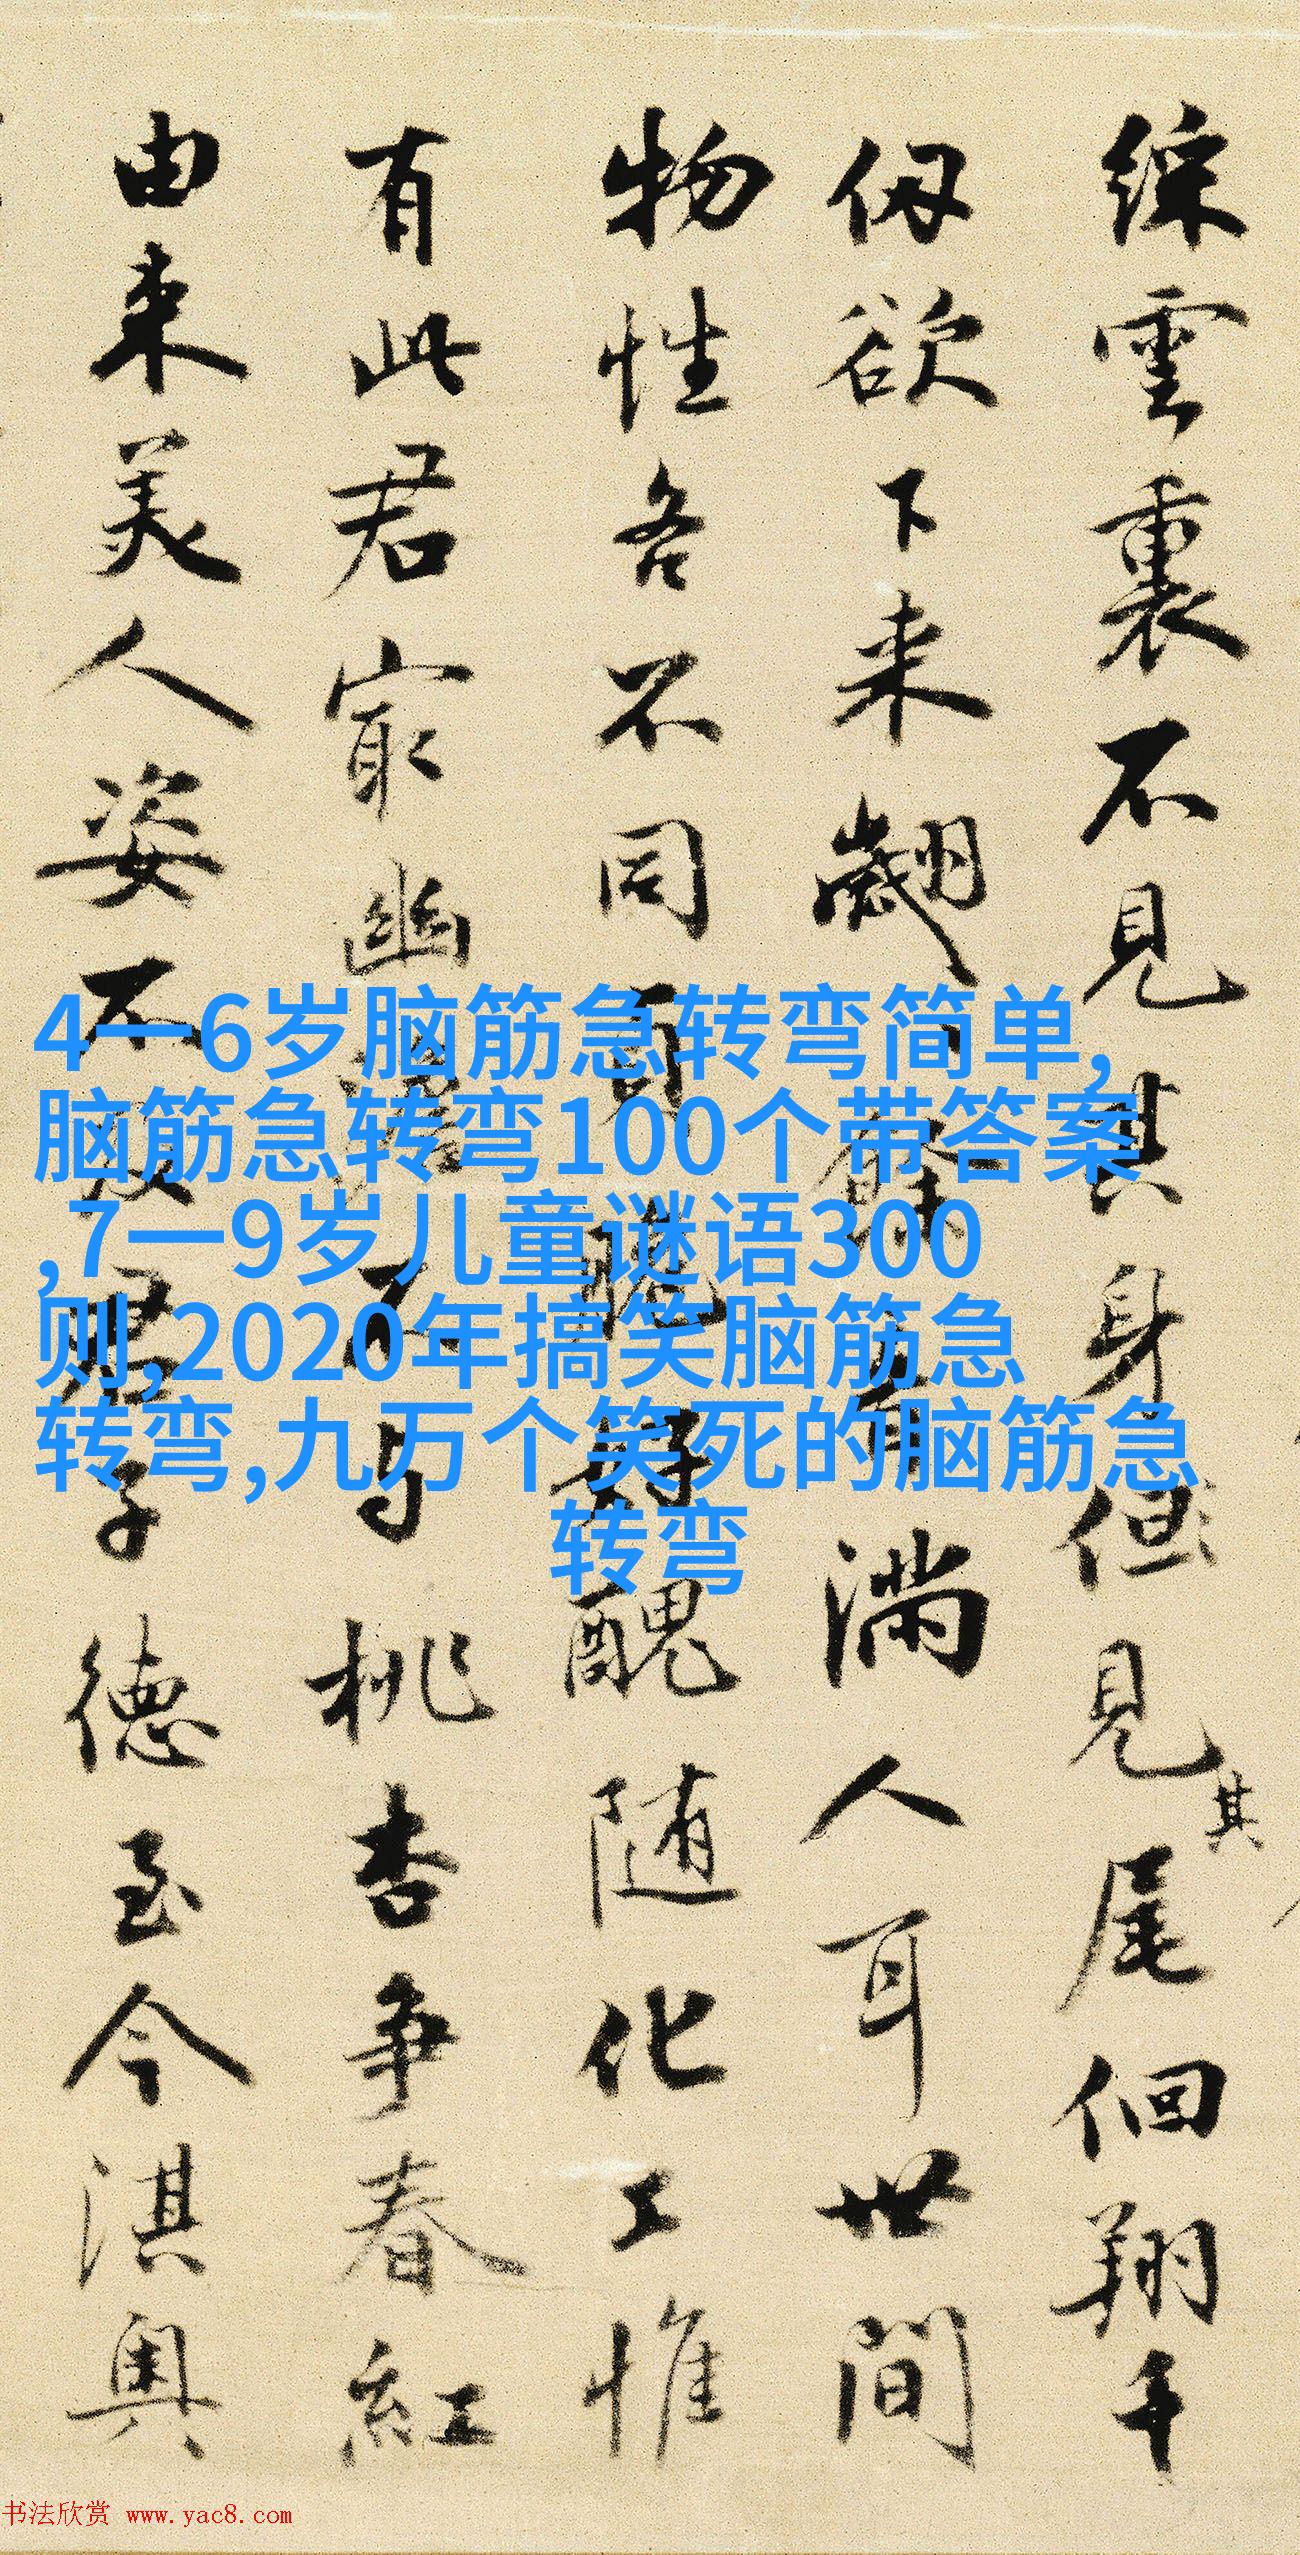 綵雲裏不見其身但見其尾佪翔千
仭欲下来有滿人耳世間
物性各不同醜随化工惟
有此君寂幽不与桃杏争春紅
由来美人姿不及君子德至今淇奥
4一6岁脑筋急转弯简单,
脑筋急转弯100个带答案
,7一9岁儿童谜语300
则,2020年搞笑脑筋急
转弯,九万个笑死的脑筋急
转弯
书法欣赏 www.yac8.com